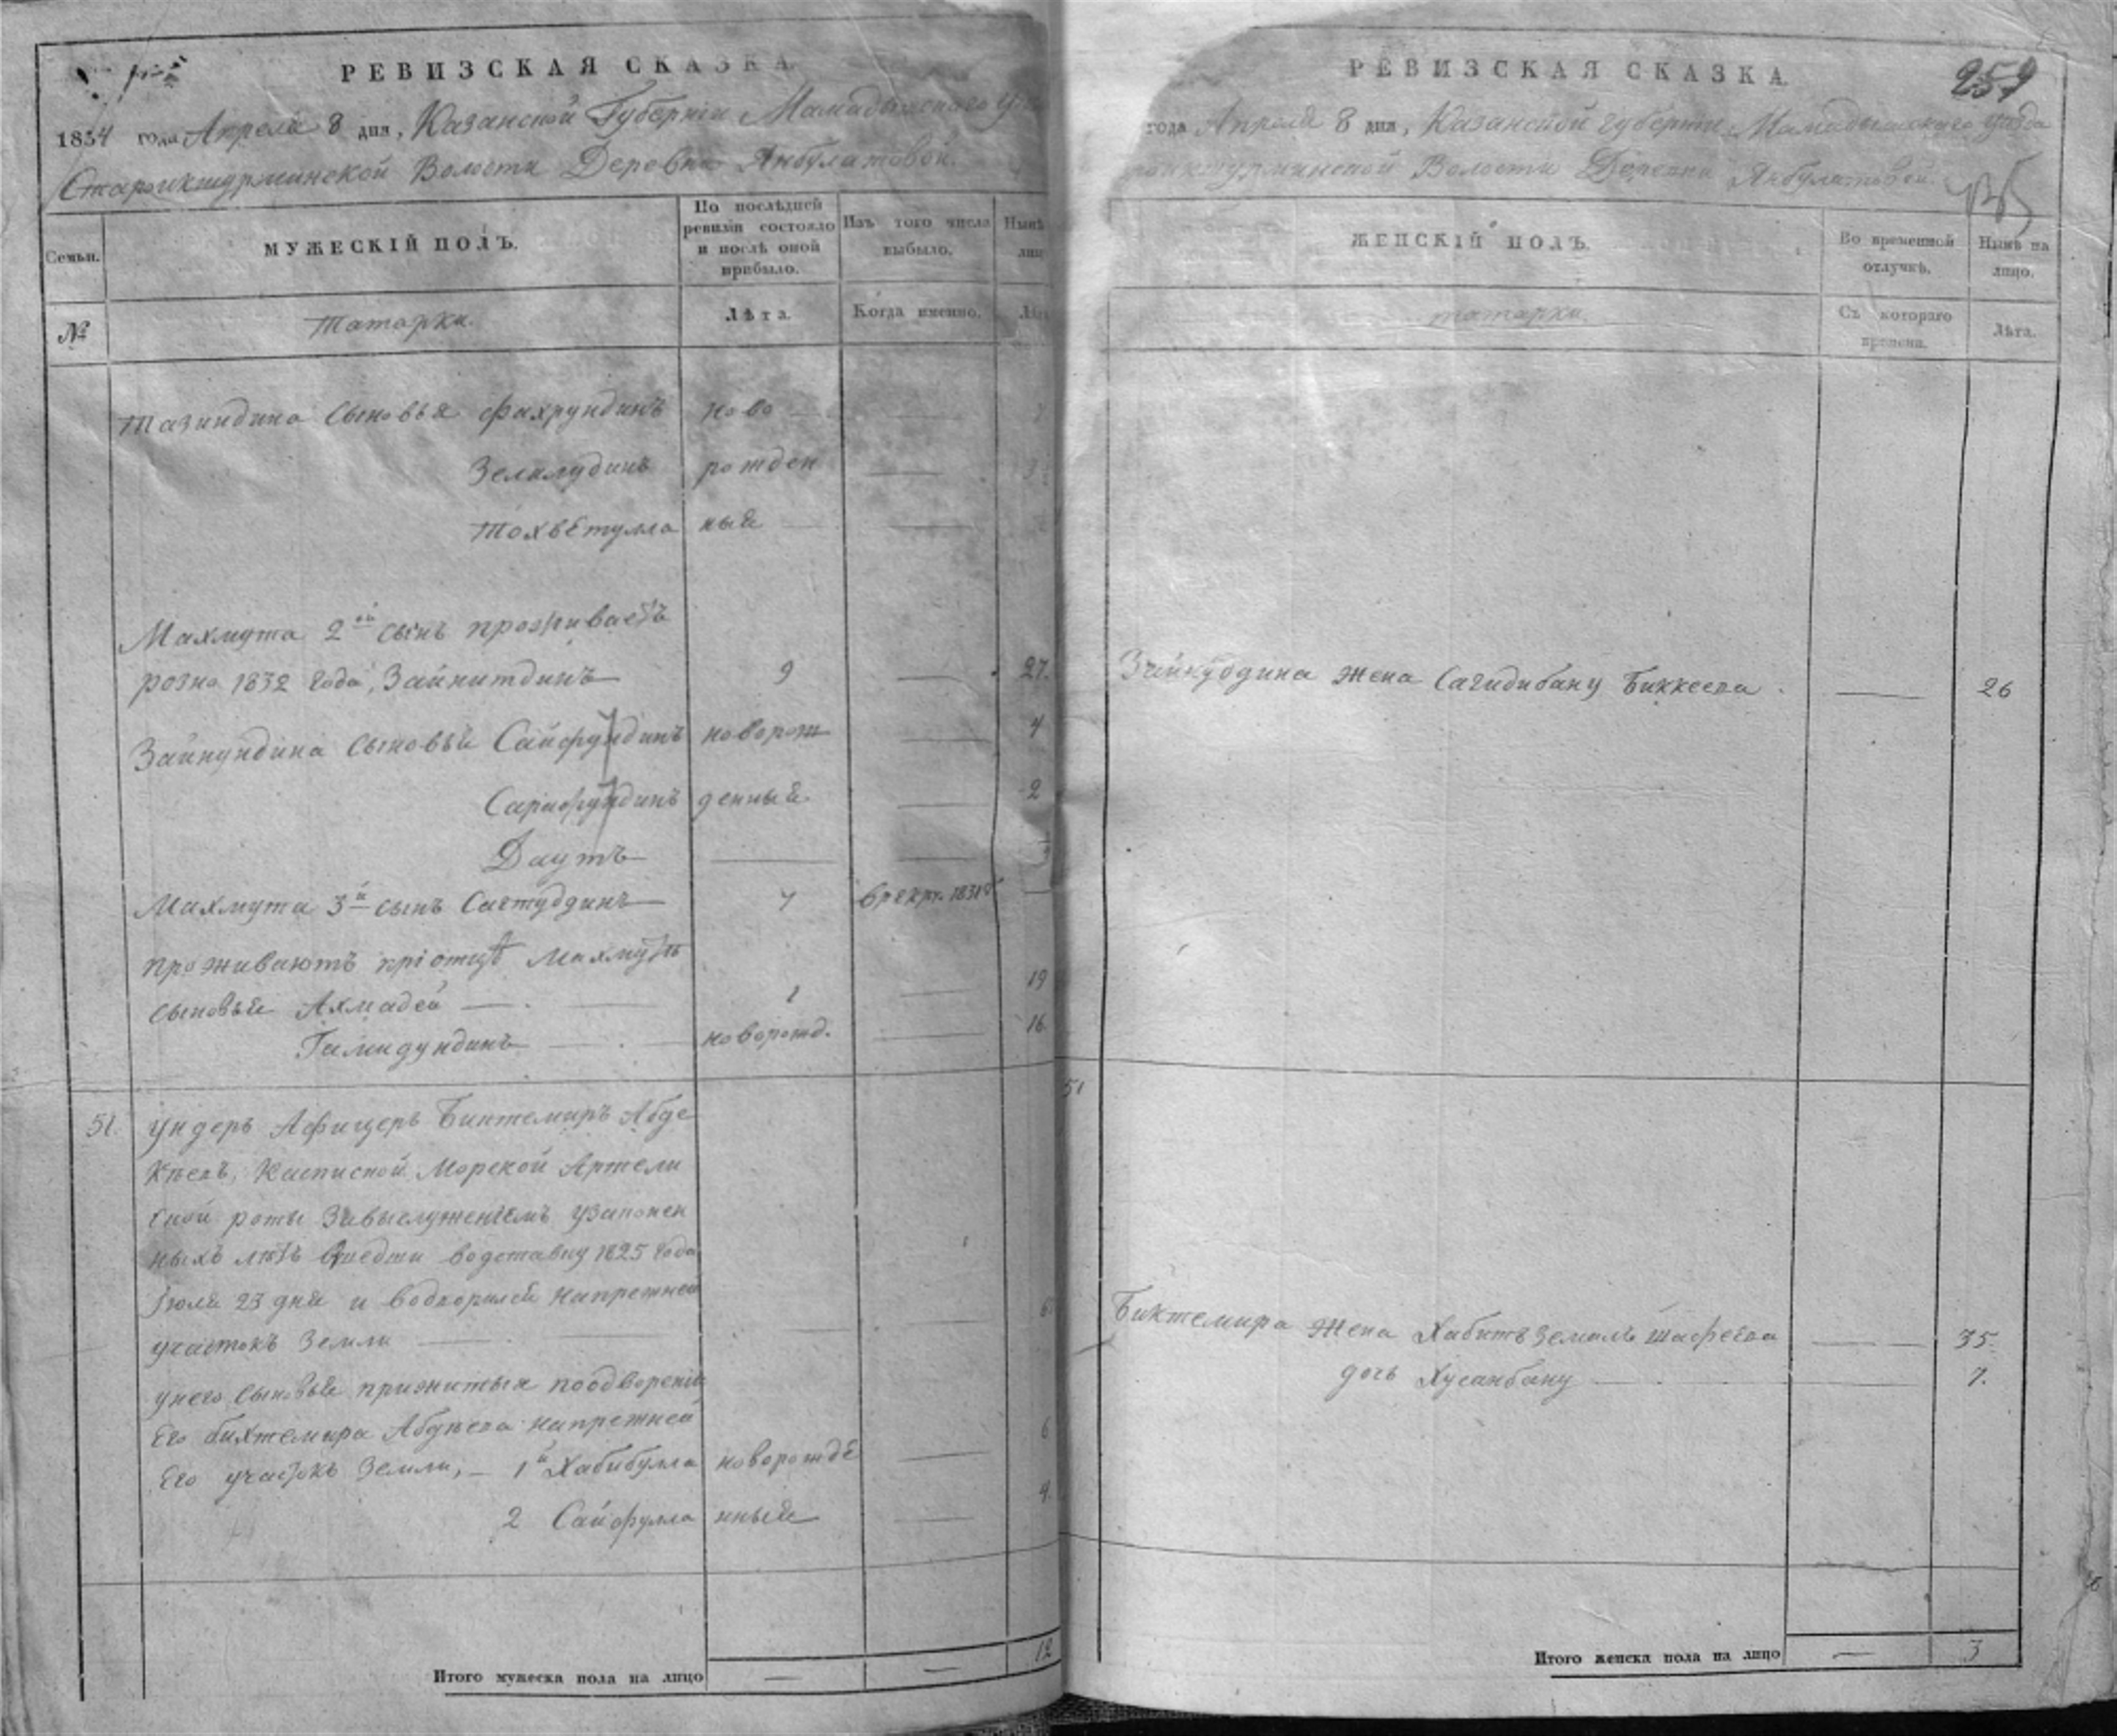 РЕВИЗСКАЯ СКАЗКА
1834 года Апреля 8 дня, Казанской Губернiи Мамадышскаго
Староикшурминской Волости Деревни Янбулатовой.
Семьи.
МУЖЕСКІЙ ПОЛЪ.
По послѣдней ревизіи состояло и послѣ оной прибыло.
Изъ того числа выбыло.
Нынѣ
№
Татарки.
Лѣта.
Когда именно.
Тазиндина сыновья Фахрундинъ ново —
Зелялудинъ рожден — 3
Тохвѣтулла ныя — —
Махмута 2ой сынъ проживаетъ
розно 1832 года, Зайнитдинъ 9 — 27.
Зайнундина сыновья Сайфундинъ новорож — 4
Сарафундинъ денныя — 2
Даутъ — —
Махмута 3й сынъ Сагтуддинъ 7 врекр. 1831 —
проживаютъ приотцѣ Махмутѣ
сыновья Ахмадей — 1 — 19
Гимидундинъ — новорожд. — 16.
51. Ундеръ Афицеръ Биктемиръ Абде
Каспиской Морской Артели
ской роты Завыслуженiемъ узаконен
ныхъ лѣтъ вотставку 1825 года
Iюля 23 дня и водворился напрежней
участокъ Земли —
унего сыновья прижитыя поодворенiи
Его Бихтемира напрежней 6
Его участокъ Земли, — 1й Хабибулла новорожде —
2 Сайфулла нныя — 4.
Итого мужеска пола на лицо — — 12
РЕВИЗСКАЯ СКАЗКА
259
года Апреля 8 дня, Казанской Губернiи Мамадышскаго уѣзда
Волости Деревни Янбулатовой.
ЖЕНСКІЙ ПОЛЪ.
Во временной отлучкѣ.
Нынѣ на лицо.
татарки.
Съ котораго времени.
Лѣта.
Зайнуддина жена Сагидибану Биккеева. — 26
51
Биктемира жена Хабитъземаль Шафеева — 35.
дочь Хусанбану — — 7.
Итого женска пола на лицо — 3